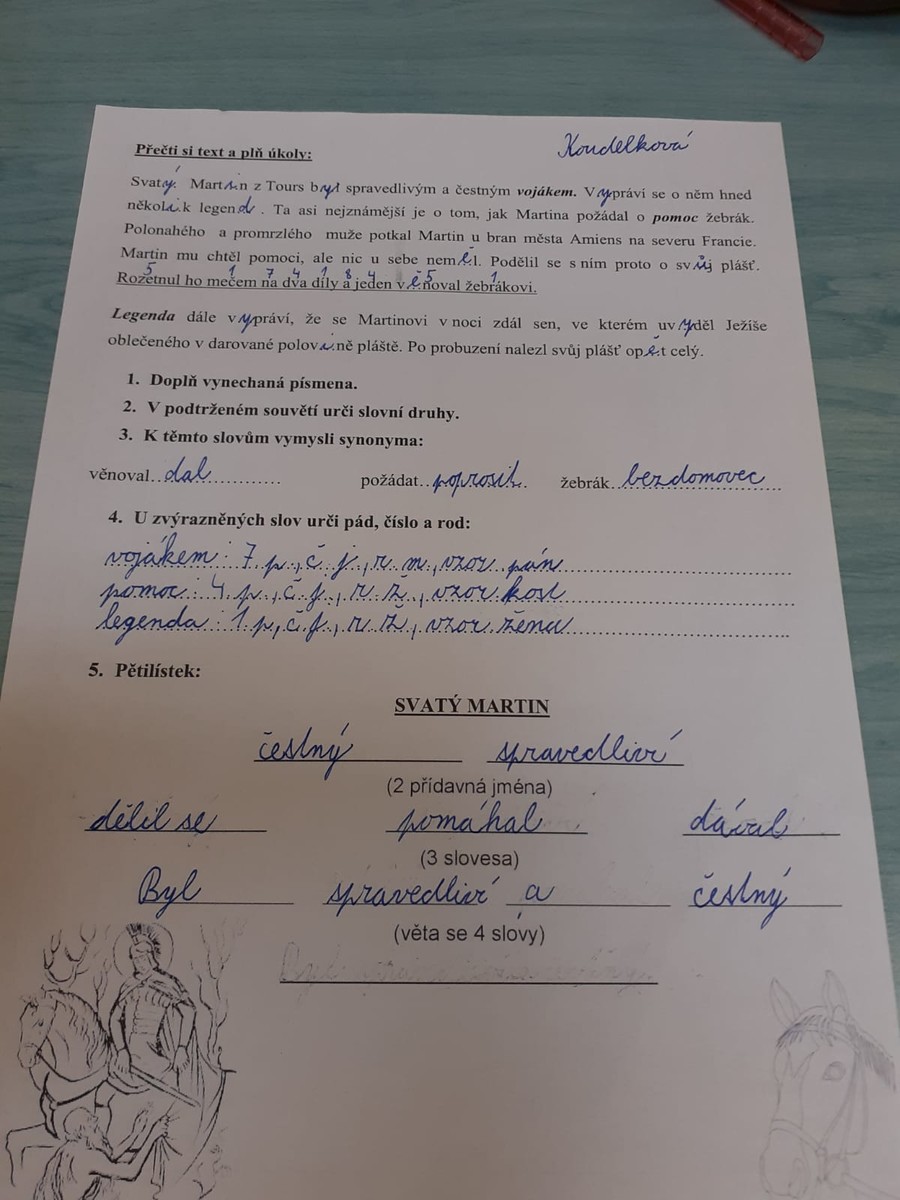 Přečti si text a plň úkoly:
Koudelková
Svatý Martin z Tours byl spravedlivým a čestným vojákem. Vypráví se o něm hned
několik legend. Ta asi nejznámější je o tom, jak Martina požádal o pomoc žebrák.
Polonahého a promrzlého muže potkal Martin u bran města Amiens na severu Francie.
Martin mu chtěl pomoci, ale nic u sebe neměl. Podělil se s ním proto o svůj plášť.
5 1 7 4 1 8 4 5 1
Rozetnul ho mečem na dva díly a jeden věnoval žebrákovi.
Legenda dále vypráví, že se Martinovi v noci zdál sen, ve kterém uvyděl Ježíše
oblečeného v darované polovině pláště. Po probuzení nalezl svůj plášť opět celý.
1. Doplň vynechaná písmena.
2. V podtrženém souvětí urči slovní druhy.
3. K těmto slovům vymysli synonyma:
věnoval..dal............ požádat..poprosit.. žebrák..bezdomovec
4. U zvýrazněných slov urči pád, číslo a rod:
vojákem : 7. p., č. j., r. m., vzor pán
pomoc : 4. p., č. j., r. ž., vzor kost
legenda : 1. p., č. j., r. ž., vzor žena
5. Pětilístek:
SVATÝ MARTIN
čestný spravedliví
(2 přídavná jména)
dělil se pomáhal dával
(3 slovesa)
Byl spravedliví a čestný
(věta se 4 slovy)